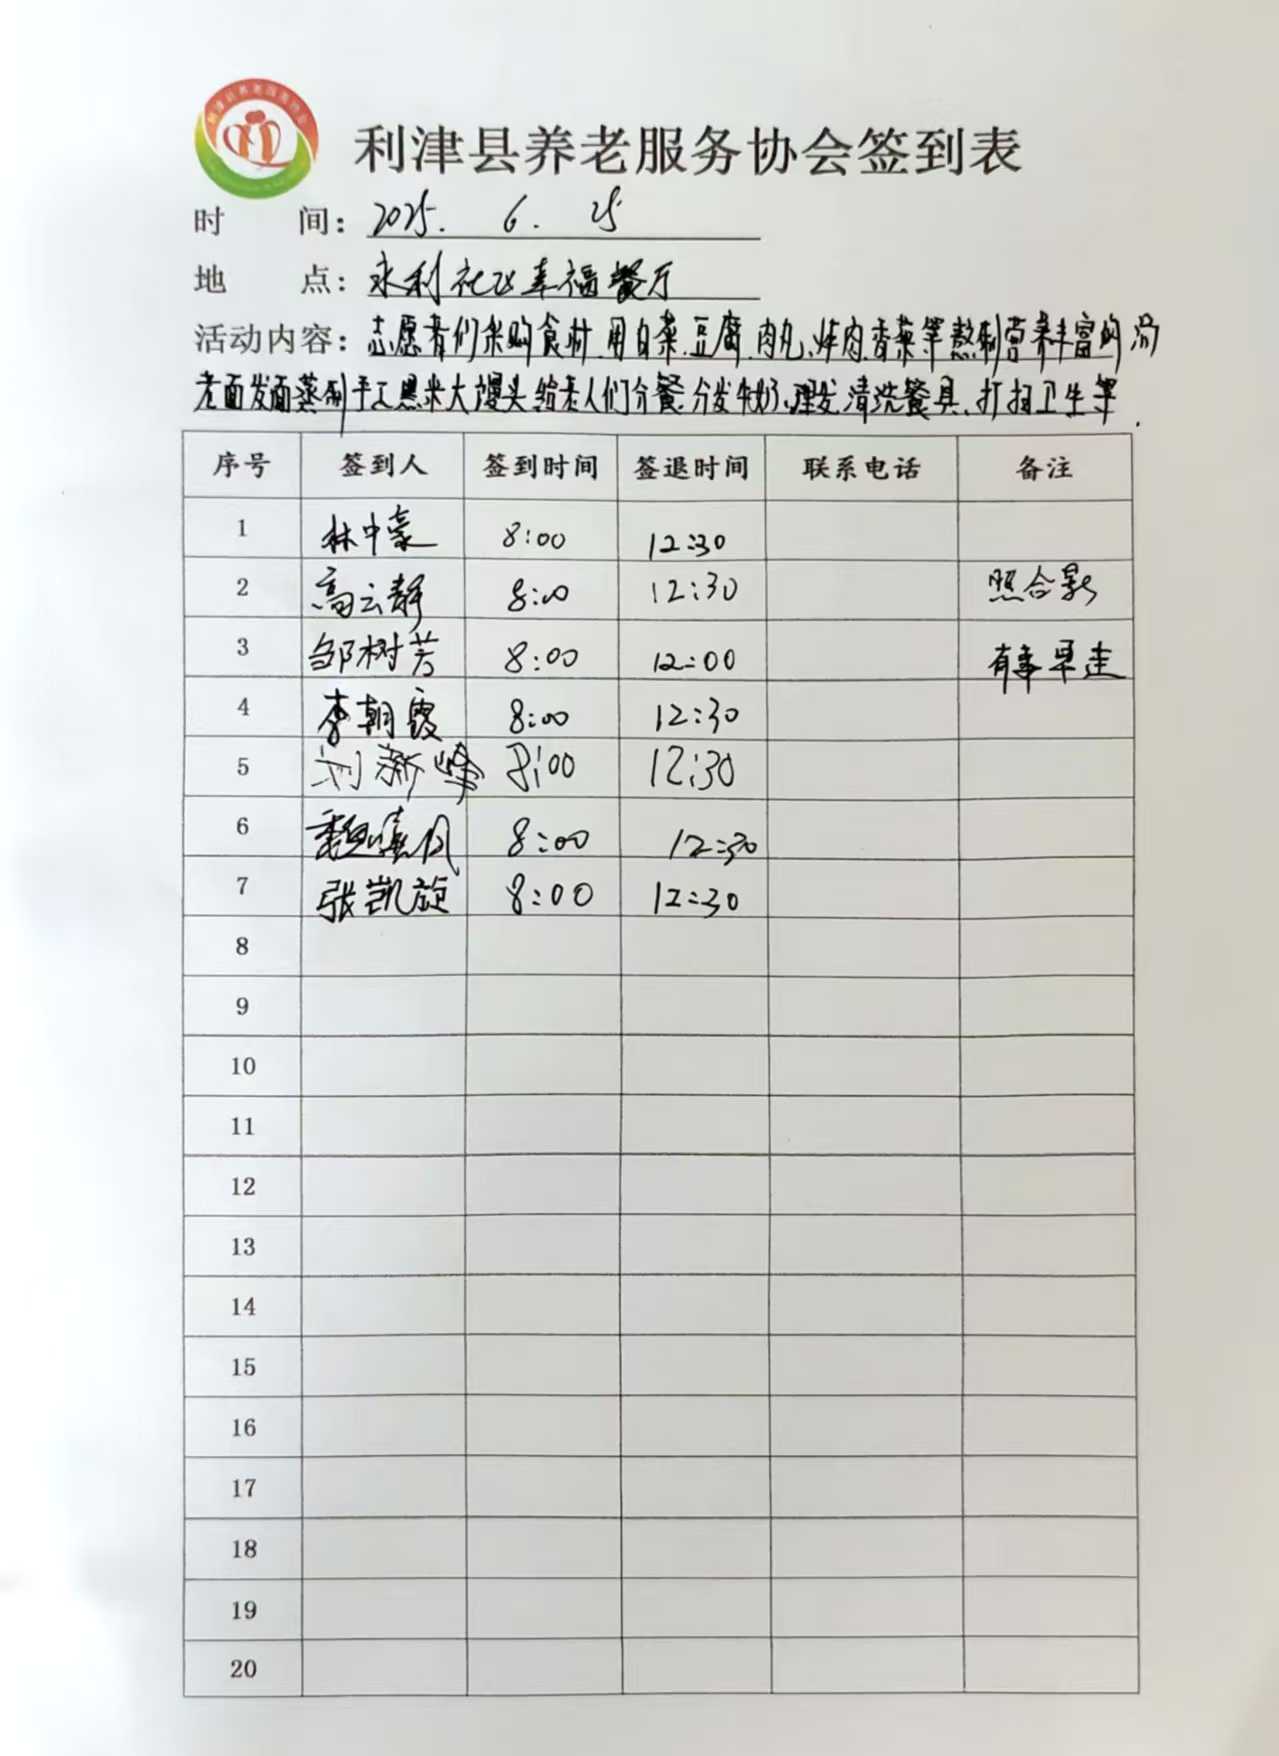 利津县养老服务协会
利津县养老服务协会签到表
时 间：2025. 6. 25
地 点：永利社区幸福餐厅
活动内容：志愿者们采购食材.用白菜.豆腐.肉丸.炸肉.香菜等熬制营养丰富的汤
老面发面蒸制手工黑米大馒头给老人们分餐.分发牛奶、理发、清洗餐具、打扫卫生等.
序号 签到人 签到时间 签退时间 联系电话 备注
1 林中豪 8:00 12:30
2 高云静 8:00 12:30 照合影
3 邹树芳 8:00 12:00 有事早走
4 李朝霞 8:00 12:30
5 刘新峰 8:00 12:30
6 8:00 12:30
7 张凯旋 8:00 12:30
8
9
10
11
12
13
14
15
16
17
18
19
20